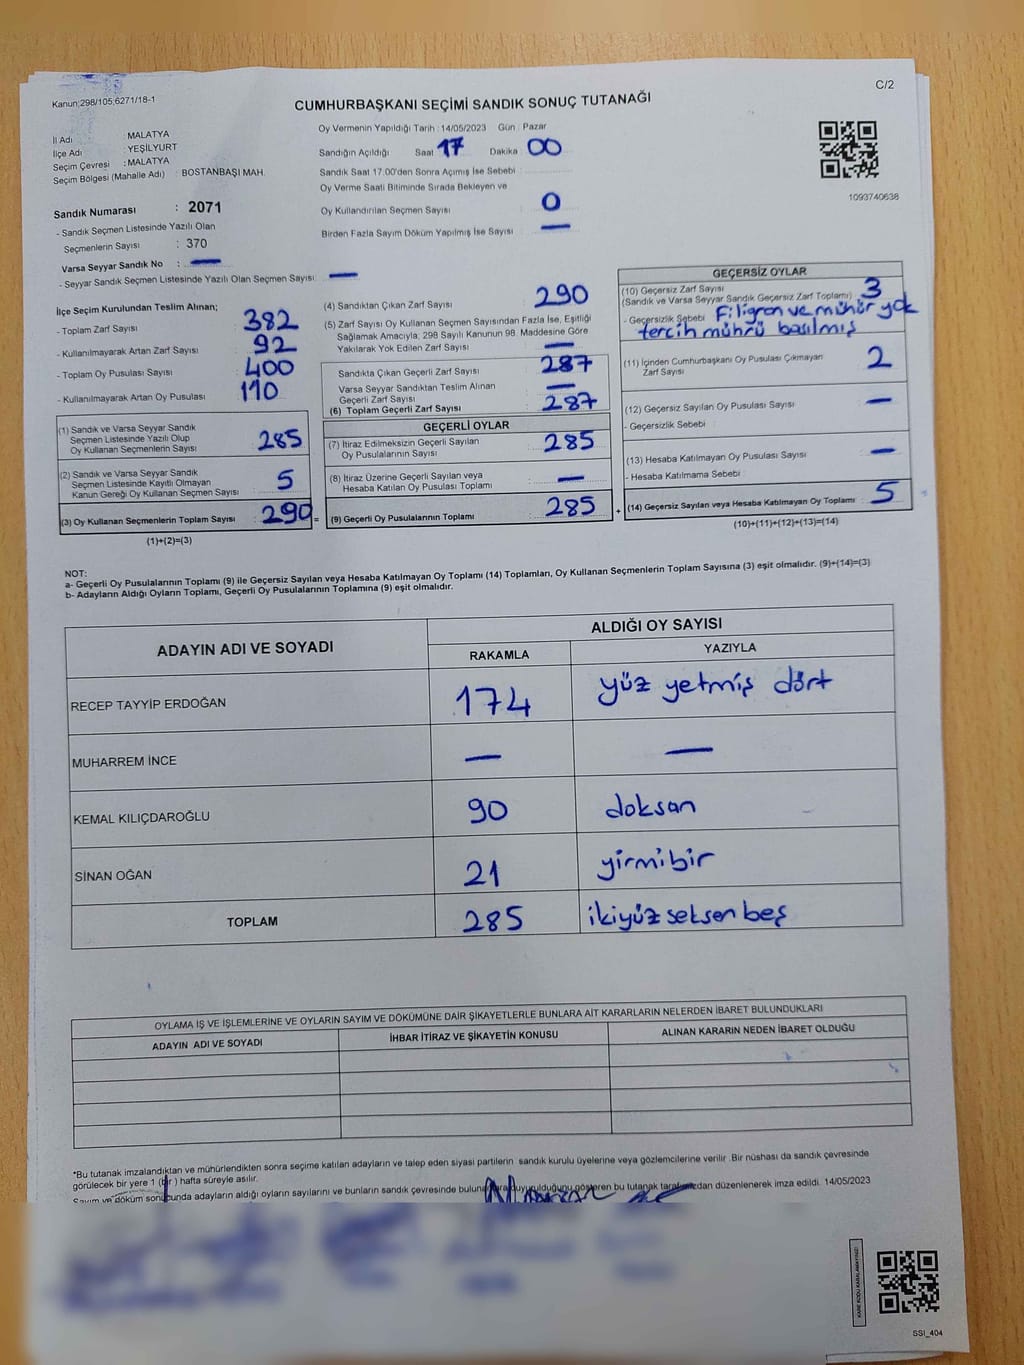 C/2
Kanun;298/105,6271/18-1
CUMHURBAŞKANI SEÇİMİ SANDIK SONUÇ TUTANAĞI
İl Adı : MALATYA
İlçe Adı : YEŞİLYURT
Seçim Çevresi : MALATYA
Seçim Bölgesi (Mahalle Adı) : BOSTANBAŞI MAH.
Oy Vermenin Yapıldığı Tarih : 14/05/2023 Gün : Pazar
Sandığın Açıldığı Saat 17 Dakika 00
Sandık Saat 17.00'den Sonra Açımış İse Sebebi :
Oy Verme Saati Bitiminde Sırada Bekleyen ve
Oy Kullandırılan Seçmen Sayısı : 0
Birden Fazla Sayım Döküm Yapılmış İse Sayısı : —
1093740638
Sandık Numarası : 2071
- Sandık Seçmen Listesinde Yazılı Olan
Seçmenlerin Sayısı : 370
Varsa Seyyar Sandık No : —
- Seyyar Sandık Seçmen Listesinde Yazılı Olan Seçmen Sayısı: —
İlçe Seçim Kurulundan Teslim Alınan;
- Toplam Zarf Sayısı : 382
- Kullanılmayarak Artan Zarf Sayısı : 92
- Toplam Oy Pusulası Sayısı : 400
- Kullanılmayarak Artan Oy Pusulası : 110
(1) Sandık ve Varsa Seyyar Sandık
Seçmen Listesinde Yazılı Olup
Oy Kullanan Seçmenlerin Sayısı : 285
(2) Sandık ve Varsa Seyyar Sandık
Seçmen Listesinde Kayıtlı Olmayan
Kanun Gereği Oy Kullanan Seçmen Sayısı : 5
(3) Oy Kullanan Seçmenlerin Toplam Sayısı : 290 =
(1)+(2)=(3)
(4) Sandıktan Çıkan Zarf Sayısı : 290
(5) Zarf Sayısı Oy Kullanan Seçmen Sayısından Fazla İse, Eşitliği
Sağlamak Amacıyla, 298 Sayılı Kanunun 98. Maddesine Göre
Yakılarak Yok Edilen Zarf Sayısı : —
Sandıkta Çıkan Geçerli Zarf Sayısı : 287
Varsa Seyyar Sandıktan Teslim Alınan
Geçerli Zarf Sayısı : —
(6) Toplam Geçerli Zarf Sayısı : 287
GEÇERLİ OYLAR
(7) İtiraz Edilmeksizin Geçerli Sayılan
Oy Pusulalarının Sayısı : 285
(8) İtiraz Üzerine Geçerli Sayılan veya
Hesaba Katılan Oy Pusulası Toplamı : —
(9) Geçerli Oy Pusulalarının Toplamı : 285 +
GEÇERSİZ OYLAR
(10) Geçersiz Zarf Sayısı
(Sandık ve Varsa Seyyar Sandık Geçersiz Zarf Toplamı) : 3
- Geçersizlik Sebebi : Filigran ve mühür yok
tercih mührü basılmış
(11) İçinden Cumhurbaşkanı Oy Pusulası Çıkmayan
Zarf Sayısı : 2
(12) Geçersiz Sayılan Oy Pusulası Sayısı : —
- Geçersizlik Sebebi :
(13) Hesaba Katılmayan Oy Pusulası Sayısı : —
- Hesaba Katılmama Sebebi :
(14) Geçersiz Sayılan veya Hesaba Katılmayan Oy Toplamı : 5
(10)+(11)+(12)+(13)=(14)
NOT:
a- Geçerli Oy Pusulalarının Toplamı (9) ile Geçersiz Sayılan veya Hesaba Katılmayan Oy Toplamı (14) Toplamları, Oy Kullanan Seçmenlerin Toplam Sayısına (3) eşit olmalıdır. (9)+(14)=(3)
b- Adayların Aldığı Oyların Toplamı, Geçerli Oy Pusulalarının Toplamına (9) eşit olmalıdır.
ADAYIN ADI VE SOYADI
ALDIĞI OY SAYISI
RAKAMLA YAZIYLA
RECEP TAYYİP ERDOĞAN 174 yüz yetmiş dört
MUHARREM İNCE — —
KEMAL KILIÇDAROĞLU 90 doksan
SİNAN OĞAN 21 yirmibir
TOPLAM 285 ikiyüz seksen beş
OYLAMA İŞ VE İŞLEMLERİNE VE OYLARIN SAYIM VE DÖKÜMÜNE DAİR ŞİKAYETLERLE BUNLARA AİT KARARLARIN NELERDEN İBARET BULUNDUKLARI
ADAYIN ADI VE SOYADI İHBAR İTİRAZ VE ŞİKAYETİN KONUSU ALINAN KARARIN NEDEN İBARET OLDUĞU
*Bu tutanak imzalandıktan ve mühürlendikten sonra seçime katılan adayların ve talep eden siyasi partilerin sandık kurulu üyelerine veya gözlemcilerine verilir .Bir nüshası da sandık çevresinde
görülecek bir yere 1 (bir ) hafta süreyle asılır.
Sayım ve döküm sonucunda adayların aldığı oyların sayılarını ve bunların sandık çevresinde duyurulduğunu gösteren bu tutanak tarafımızdan düzenlenerek imza edildi. 14/05/2023
SSI_404